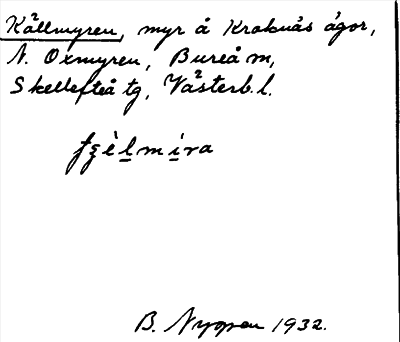 Källmyren, myr å Kroknäs ägor,
N. Oxmyren, Bureå m,
Skellefteå tg, Västerb.l.
B. Nygren 1932.